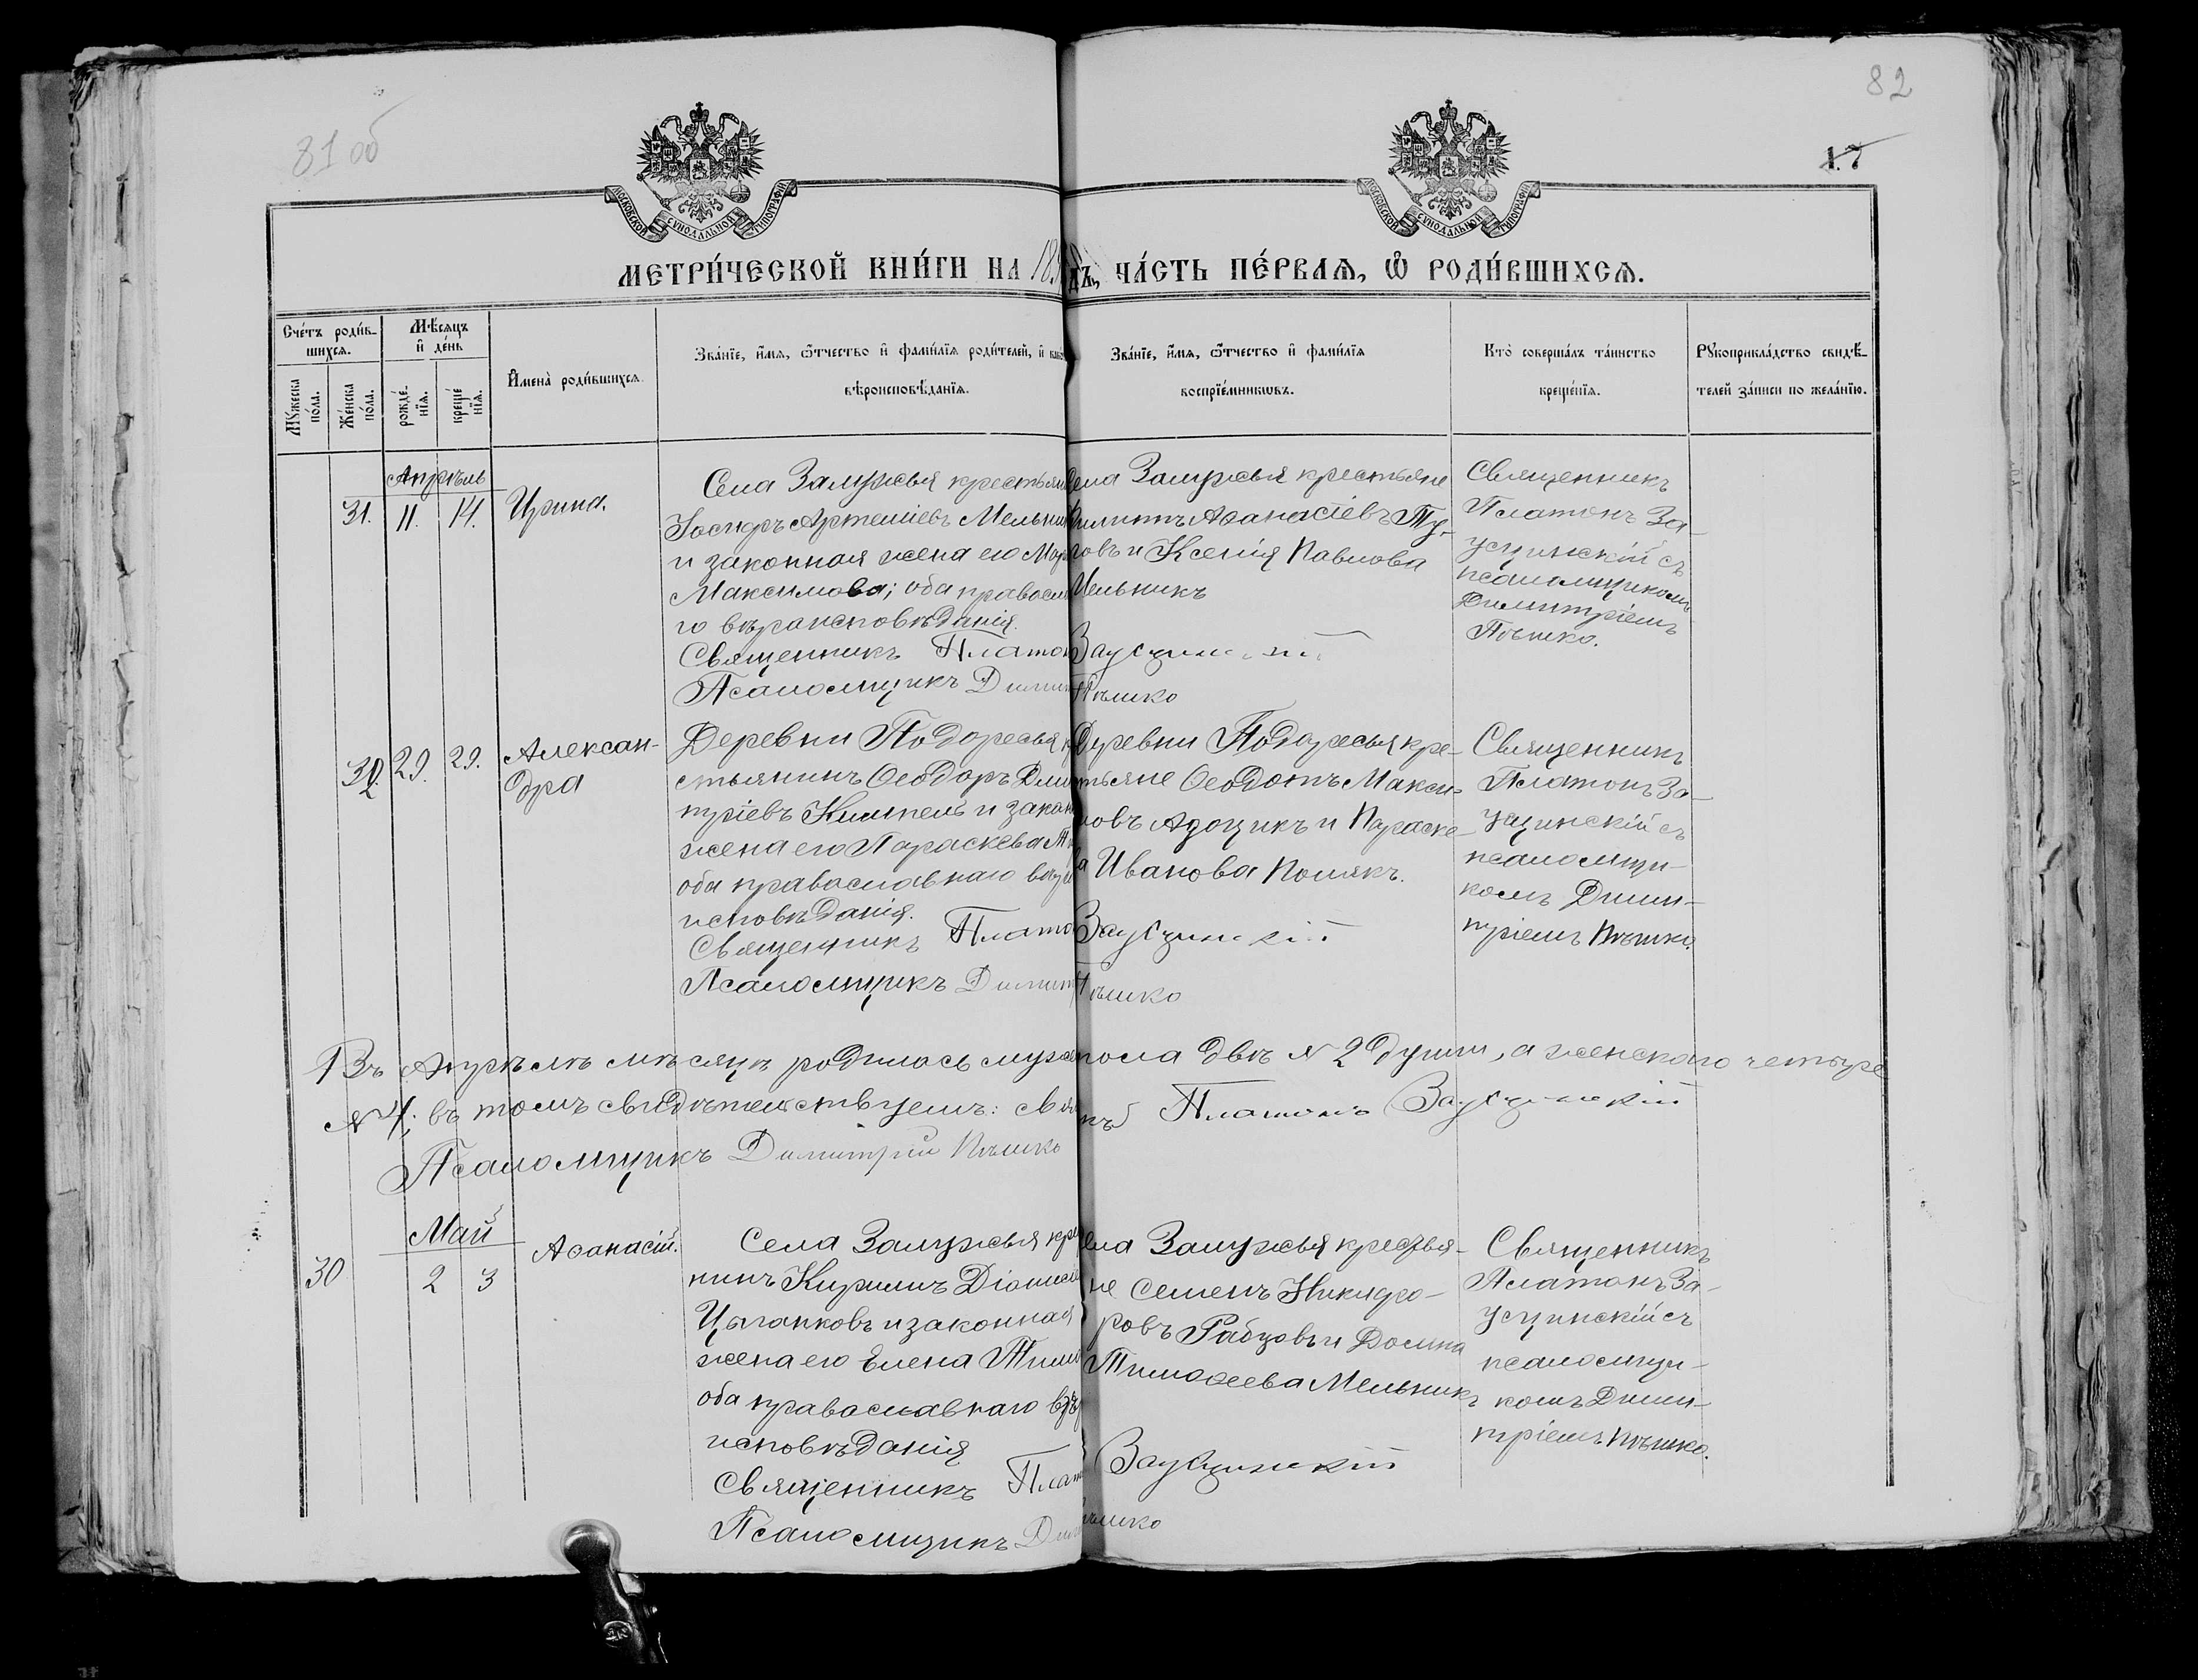 81 об
82
17
МОСКОВСКОЙ СУНОДАЛЬНОЙ ТИПОГРАФІИ
МОСКОВСКОЙ СУНОДАЛЬНОЙ ТИПОГРАФІИ
МЕТРИ́ЧЕСКОЙ КНИ́ГИ НА 18 ДЪ, ЧА́СТЬ ПЕ́РВАѦ, Ѡ҆ РОДИ́ВШИХСѦ.
Сче́тъ роди́в-
шихсѧ.
Мѣ́сѧцъ
и҆ де́нь
Мꙋжеска
по́ла.
Же́нска
по́ла.
рожде́-
нїѧ.
креще́
нїѧ.
И҆мена̀ роди́вшихсѧ.
Зва́нїе, и҆́мѧ, ѻ҆́тчество и҆ фами́лїѧ роди́телей, и҆
вѣроисповѣ́данїѧ.
Зва́нїе, и҆́мѧ, ѻ҆́тчество и҆ фами́лїѧ
воспрїе́мникѡвъ.
Кто̀ соверша́лъ та́инство
креще́нїѧ.
Рꙋкоприкла́дство свидѣ́-
телей за́писи по жела́нїю.
Апрѣль
31. 11. 14. Ирина.
Села Залужья крестьян
Іосифъ Артеміевъ Мельник
и законная жена его Мар
Максимова; оба правосл
го вѣроисповѣданія.
Священникъ Платон
Псаломщикъ Димит
Села Залужья крестьяне
Филиппъ Аѳанасіевъ Ту-
ровъ и Ксенія Павлова
Мельникъ
Заусцинскій
Пѣшко
Священникъ
Платонъ За-
усцинскій съ
псаломщикомъ
Димитріемъ
Пѣшко.
32. 29. 29. Алексан-
дра
Деревни Подоресья к
стьянинъ Ѳеодоръ Дим
тріевъ Киштель и закон
жена его Параскева
оба православнаго вѣр
исповѣданія.
Священникъ Плато
Псаломщикъ Димит
Деревни Подоресья кре-
стьяне Ѳеодотъ Макси-
мовъ Адощикъ и Параске-
ва Иванова Полякъ.
Заусцинскій
Пѣшко
Священникъ
Платонъ За-
усцинскій съ
псаломщи-
комъ Дими-
тріемъ Пѣшко.
Въ Апрѣлѣ мѣсяцѣ родилось муже пола двѣ № 2 души, а женскаго четыре
№ 4; въ томъ свидѣтельствуемъ: Свя къ Платонъ Заусцинскій
Псаломщикъ Димитрій Пѣшко
Май
30 2 3 Аѳанасій.
Села Залужья кре
нинъ Кириллъ Діонисіе
Цыганковъ и законная
жена его Елена Тимо
оба православнаго вѣр
исповѣданія
Священникъ Плат
Псаломщикъ Ди
Села Залужья крестья-
не Семенъ Никифо-
ровъ Рабцовъ и Домна
Тимоѳеева Мельникъ
Заусцинскій
Пѣшко
Священникъ
Платонъ За-
усцинскій съ
псаломщи-
комъ Дими-
тріемъ Пѣшко.